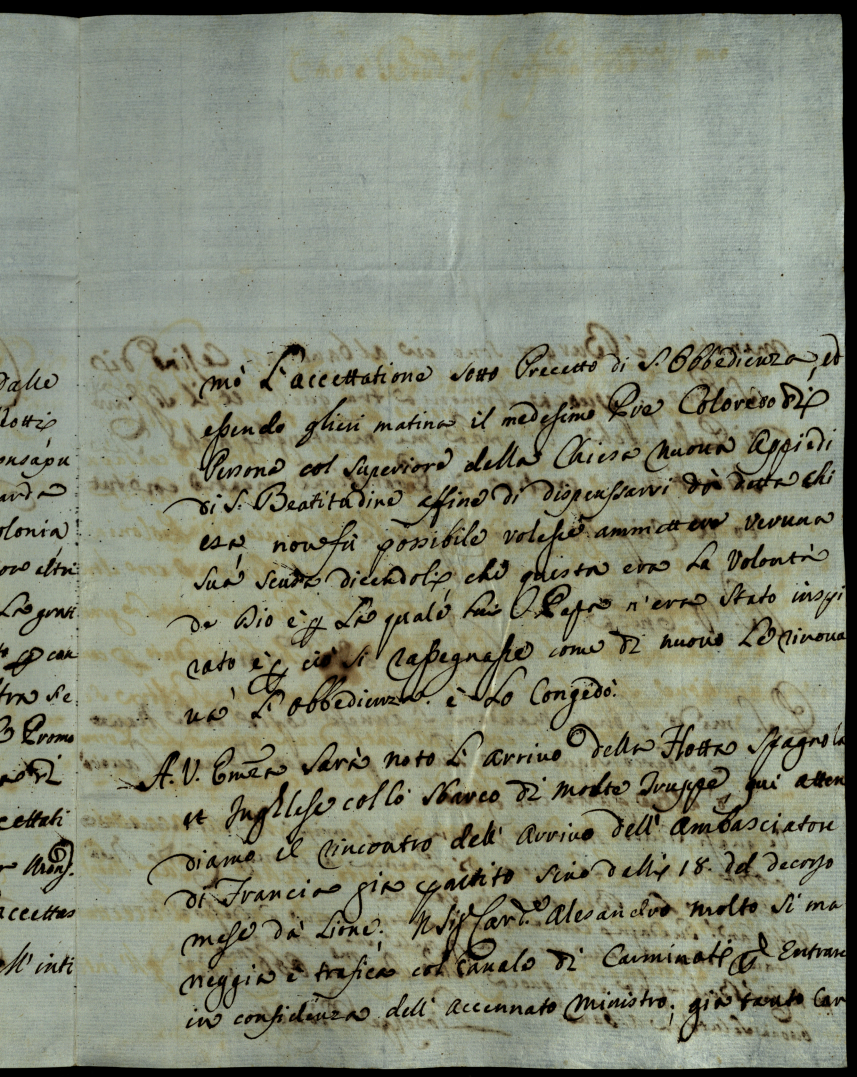 Dalle
lotti
onsapu
arda
olonia
ove altri
La gonti
to con
tra se
Promo
cettati
Mons.
accettas
ell' inti
mò L'accettatione sotto Precetto di S. Obbedienza, et
essendo glieri matina il medesimo Pre Coloredo di
Persona col superiore della Chiesa Nuova Appiedi
di S. Beatitudine affine di dispensarvi da detta chi
esa non fù possibile volesse ammettere veruna
sua scusa dicendoli che questa era La Volontà
de Dio è La quale Papa n'era stato inspi
rato è ciò si rassegnasse come di nuovo Le rinova
va L'obbedienza. è Lo Congedò.
A. V. Emza sarà noto L'arrivo della Flotta Spagnola
et Inglese collo sbarco di molte Truppe, qui atten
diamo il rincontro dell' Arrivo dell' Ambasciatore
di Francia già partito sino delli 18. del decorso
mese da Lione. Il Sig. Card.e Alesandro molto si ma
neggia è trafica col Canale di Carminati Entrare
in considenza dell' accennato Ministro, già tanto Car